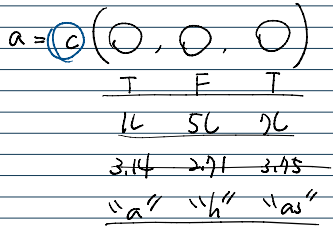 a = c ( , , )
T F T
1L 5L 7L
3.14 2.71 3.75
"a" "h" "as"